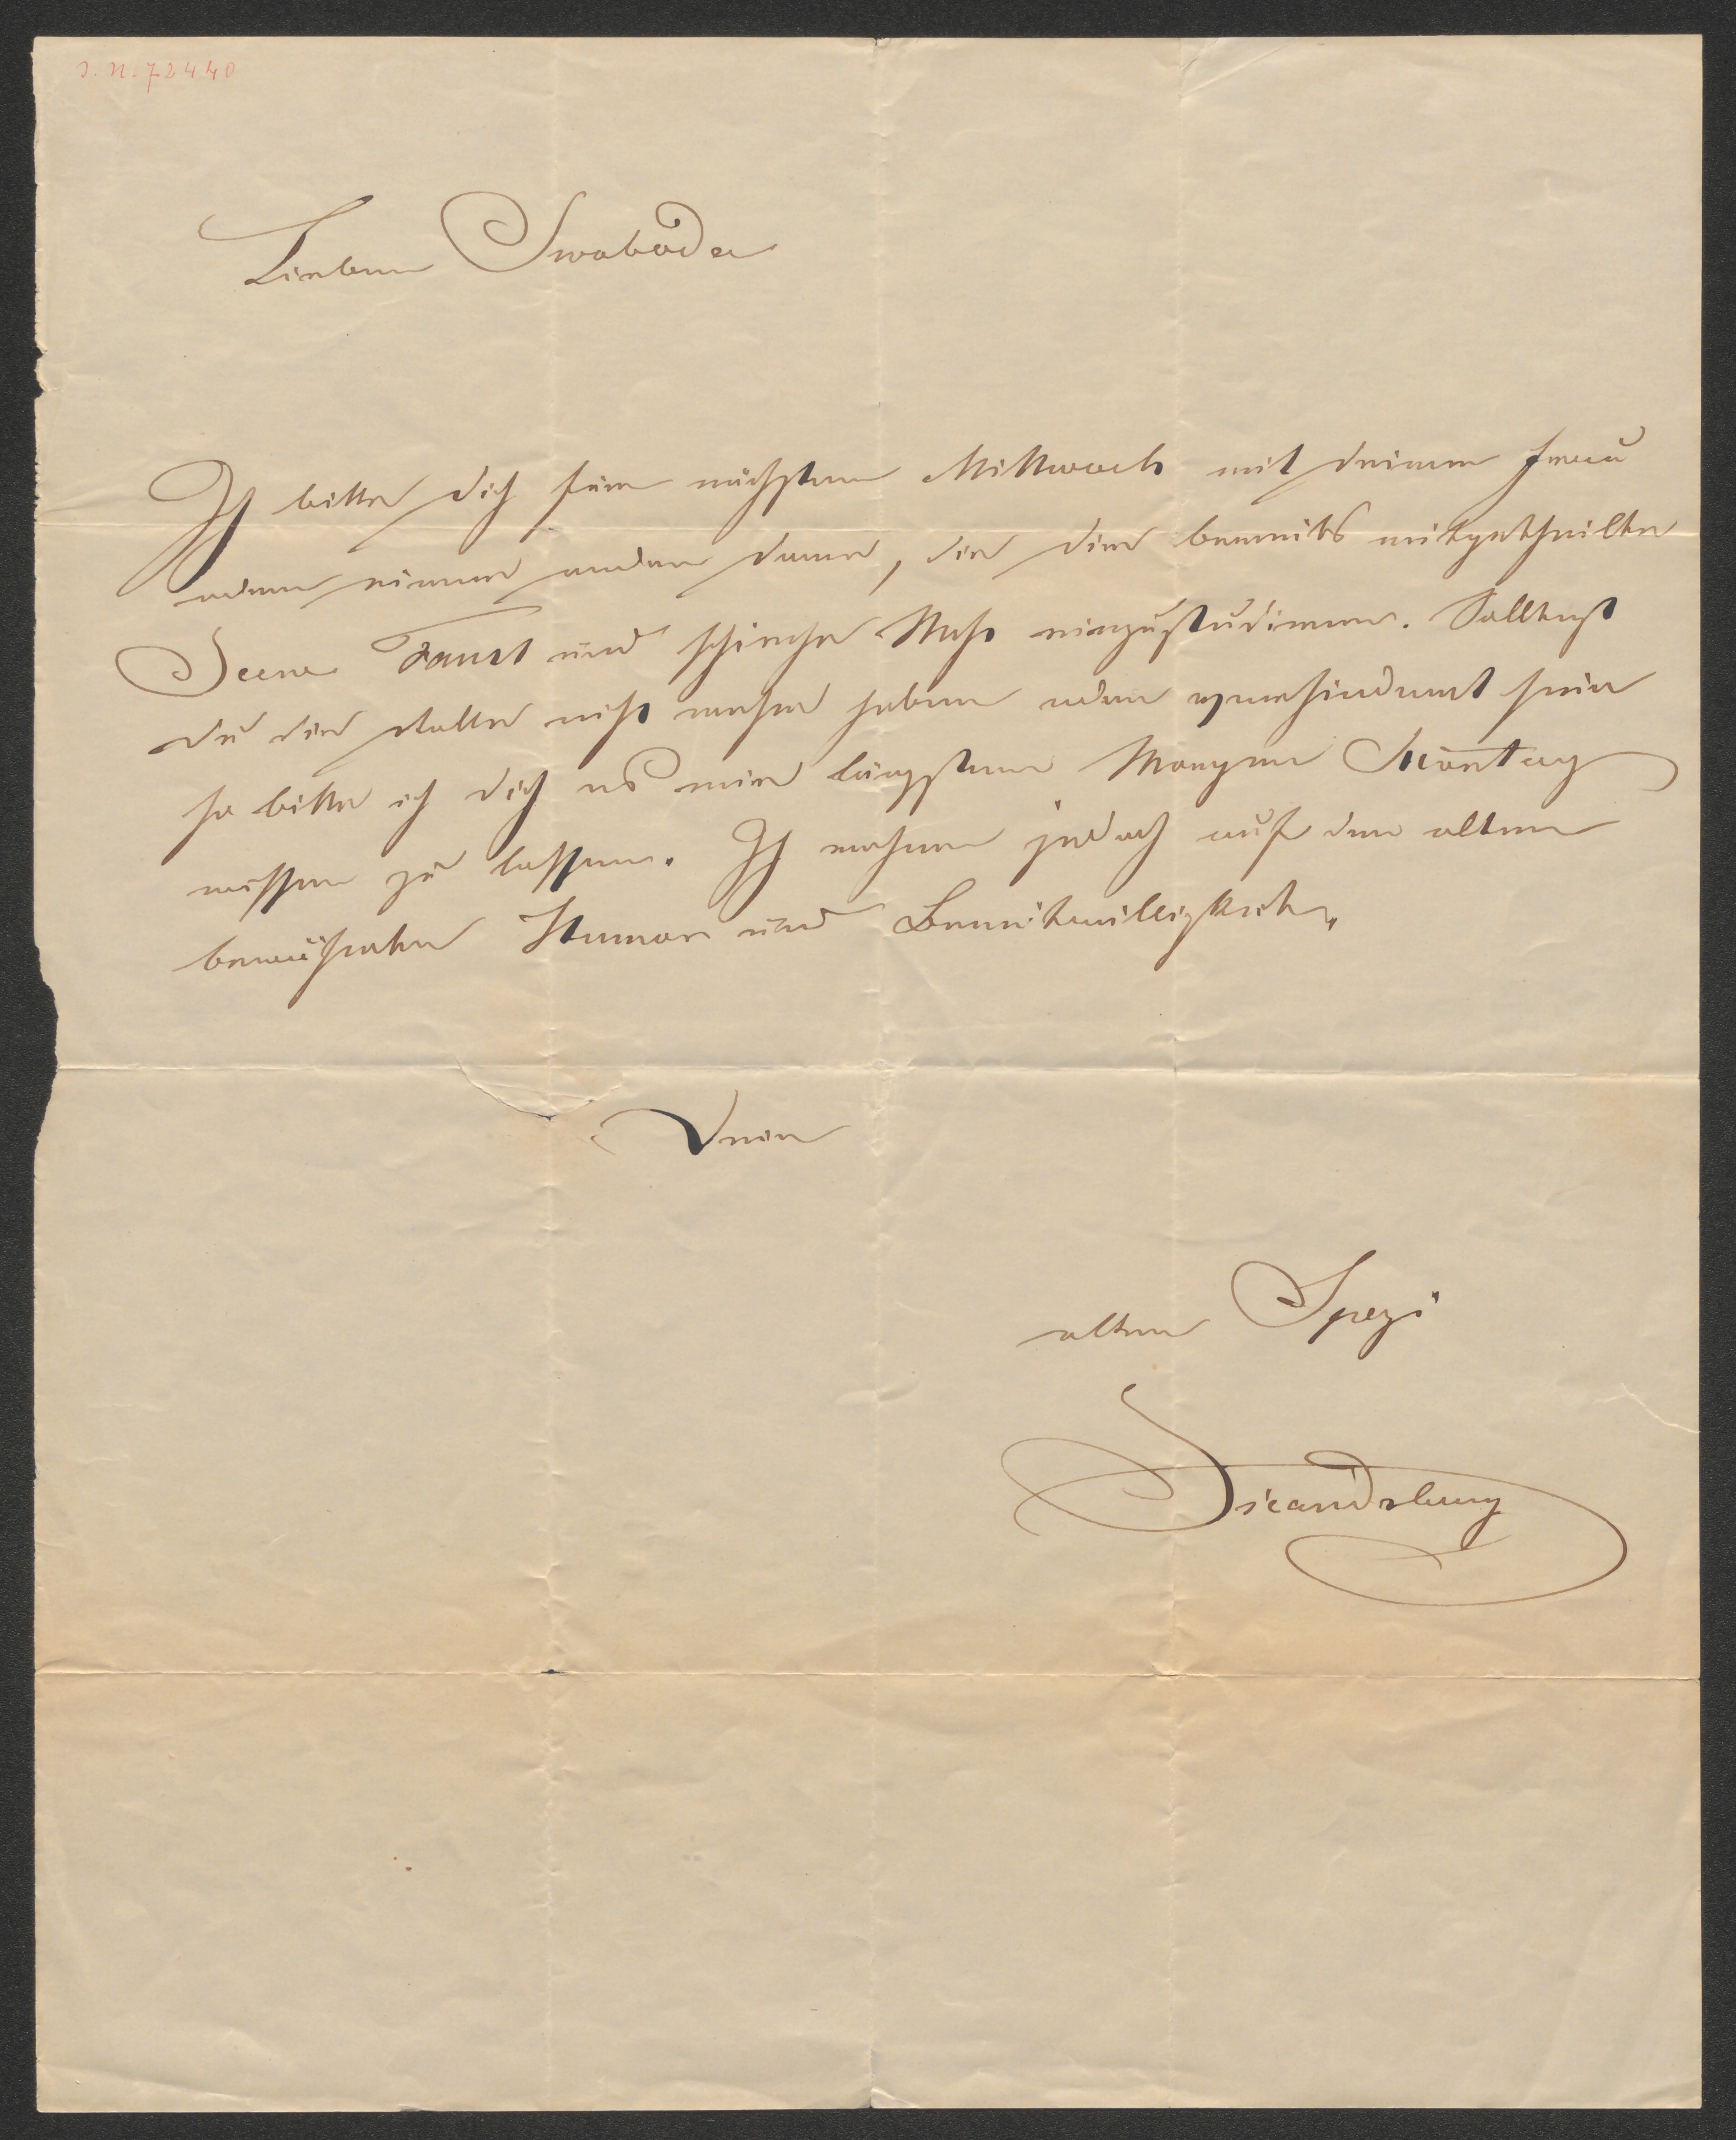 I. N. 72440
Lieber Swoboda
Ich bitte dich für nächsten Mittwoch mit deiner Frau
oder einer andern Dame, die dir bereits mitgetheilte
Scene Faust und schieche Mahr einzustudieren. Solltest
du die Rolle nicht mehr haben oder verhindert sein
so bitte ich dich es mir längstens Morgen Montag
wissen zu lassen. Ich rechne jedoch auf den alten
bewährten Humor und Bereitwilligkeit.
Dein
alter Spezi